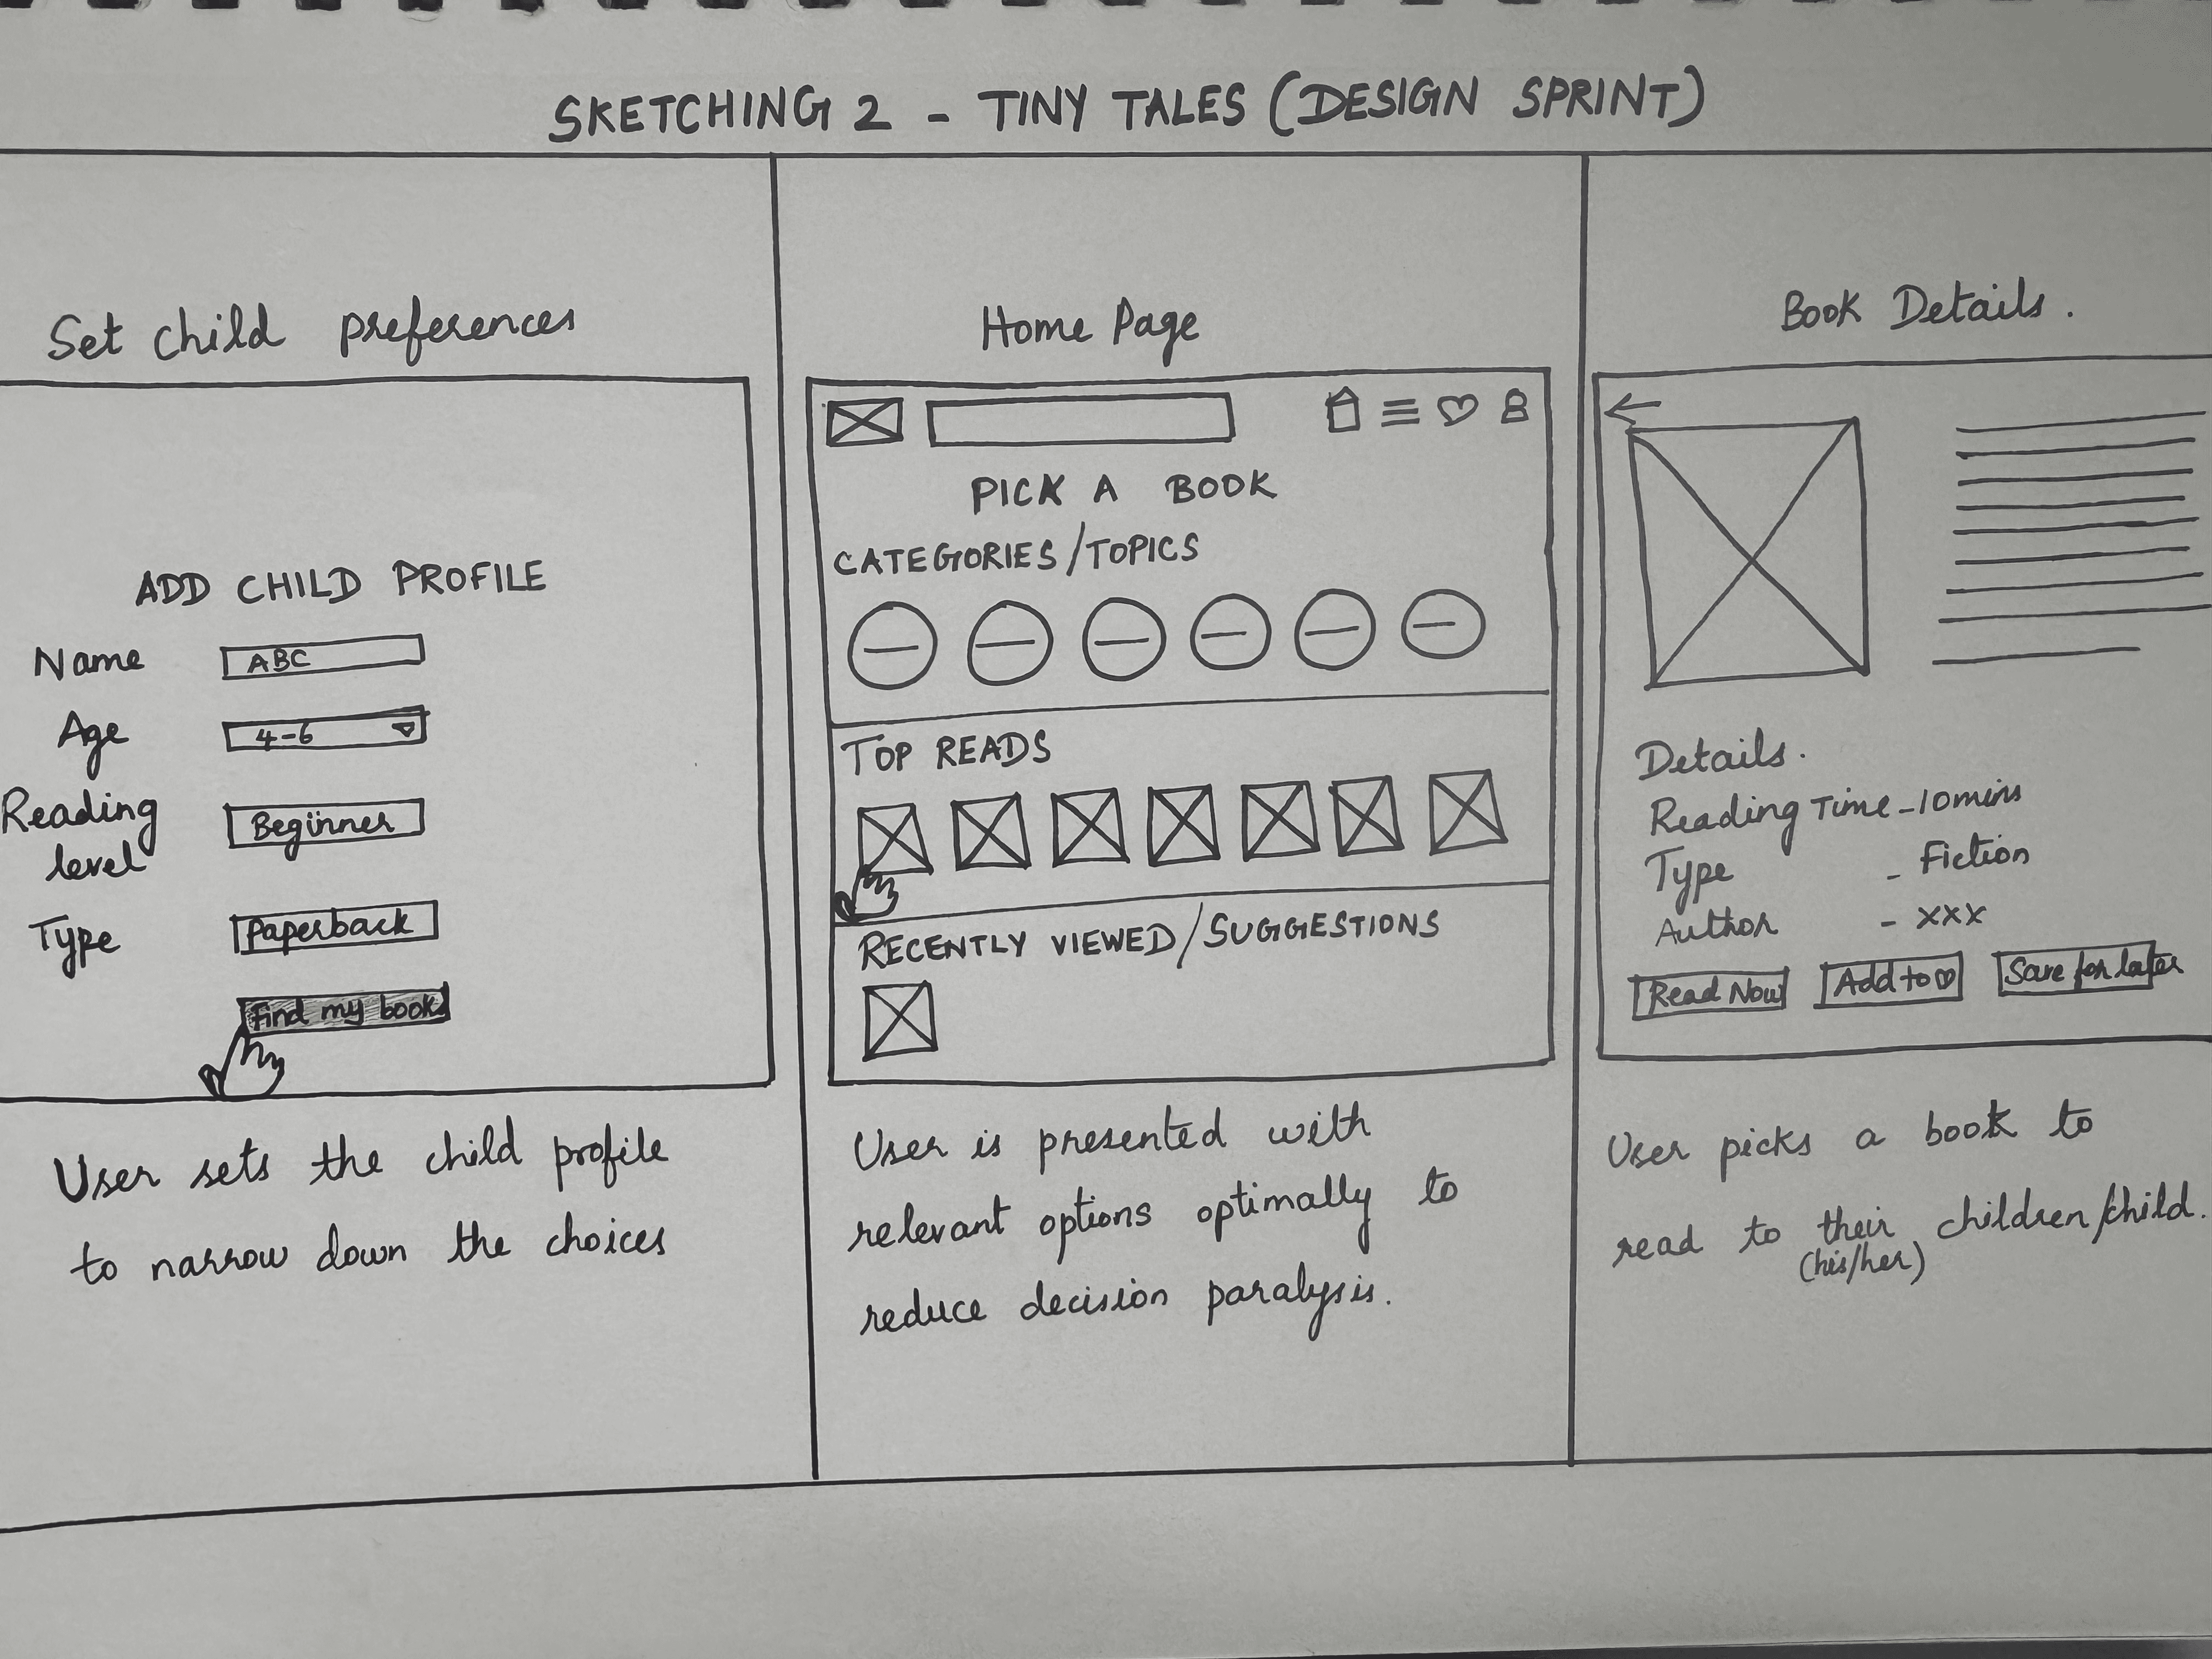 SKETCHING 2 - TINY TALES (DESIGN SPRINT)
Set child preferences
ADD CHILD PROFILE
Name ABC
Age 4-6
Reading level Beginner
Type Paperback
Find my book
User sets the child profile
to narrow down the choices
Home Page
PICK A BOOK
CATEGORIES/TOPICS
TOP READS
RECENTLY VIEWED/SUGGESTIONS
User is presented with
relevant options optimally to
reduce decision paralysis.
Book Details.
Details.
Reading Time - 10mins
Type - Fiction
Author - XXX
Read Now Add to ♡ Save for later
User picks a book to
read to their children/child.
(his/her)